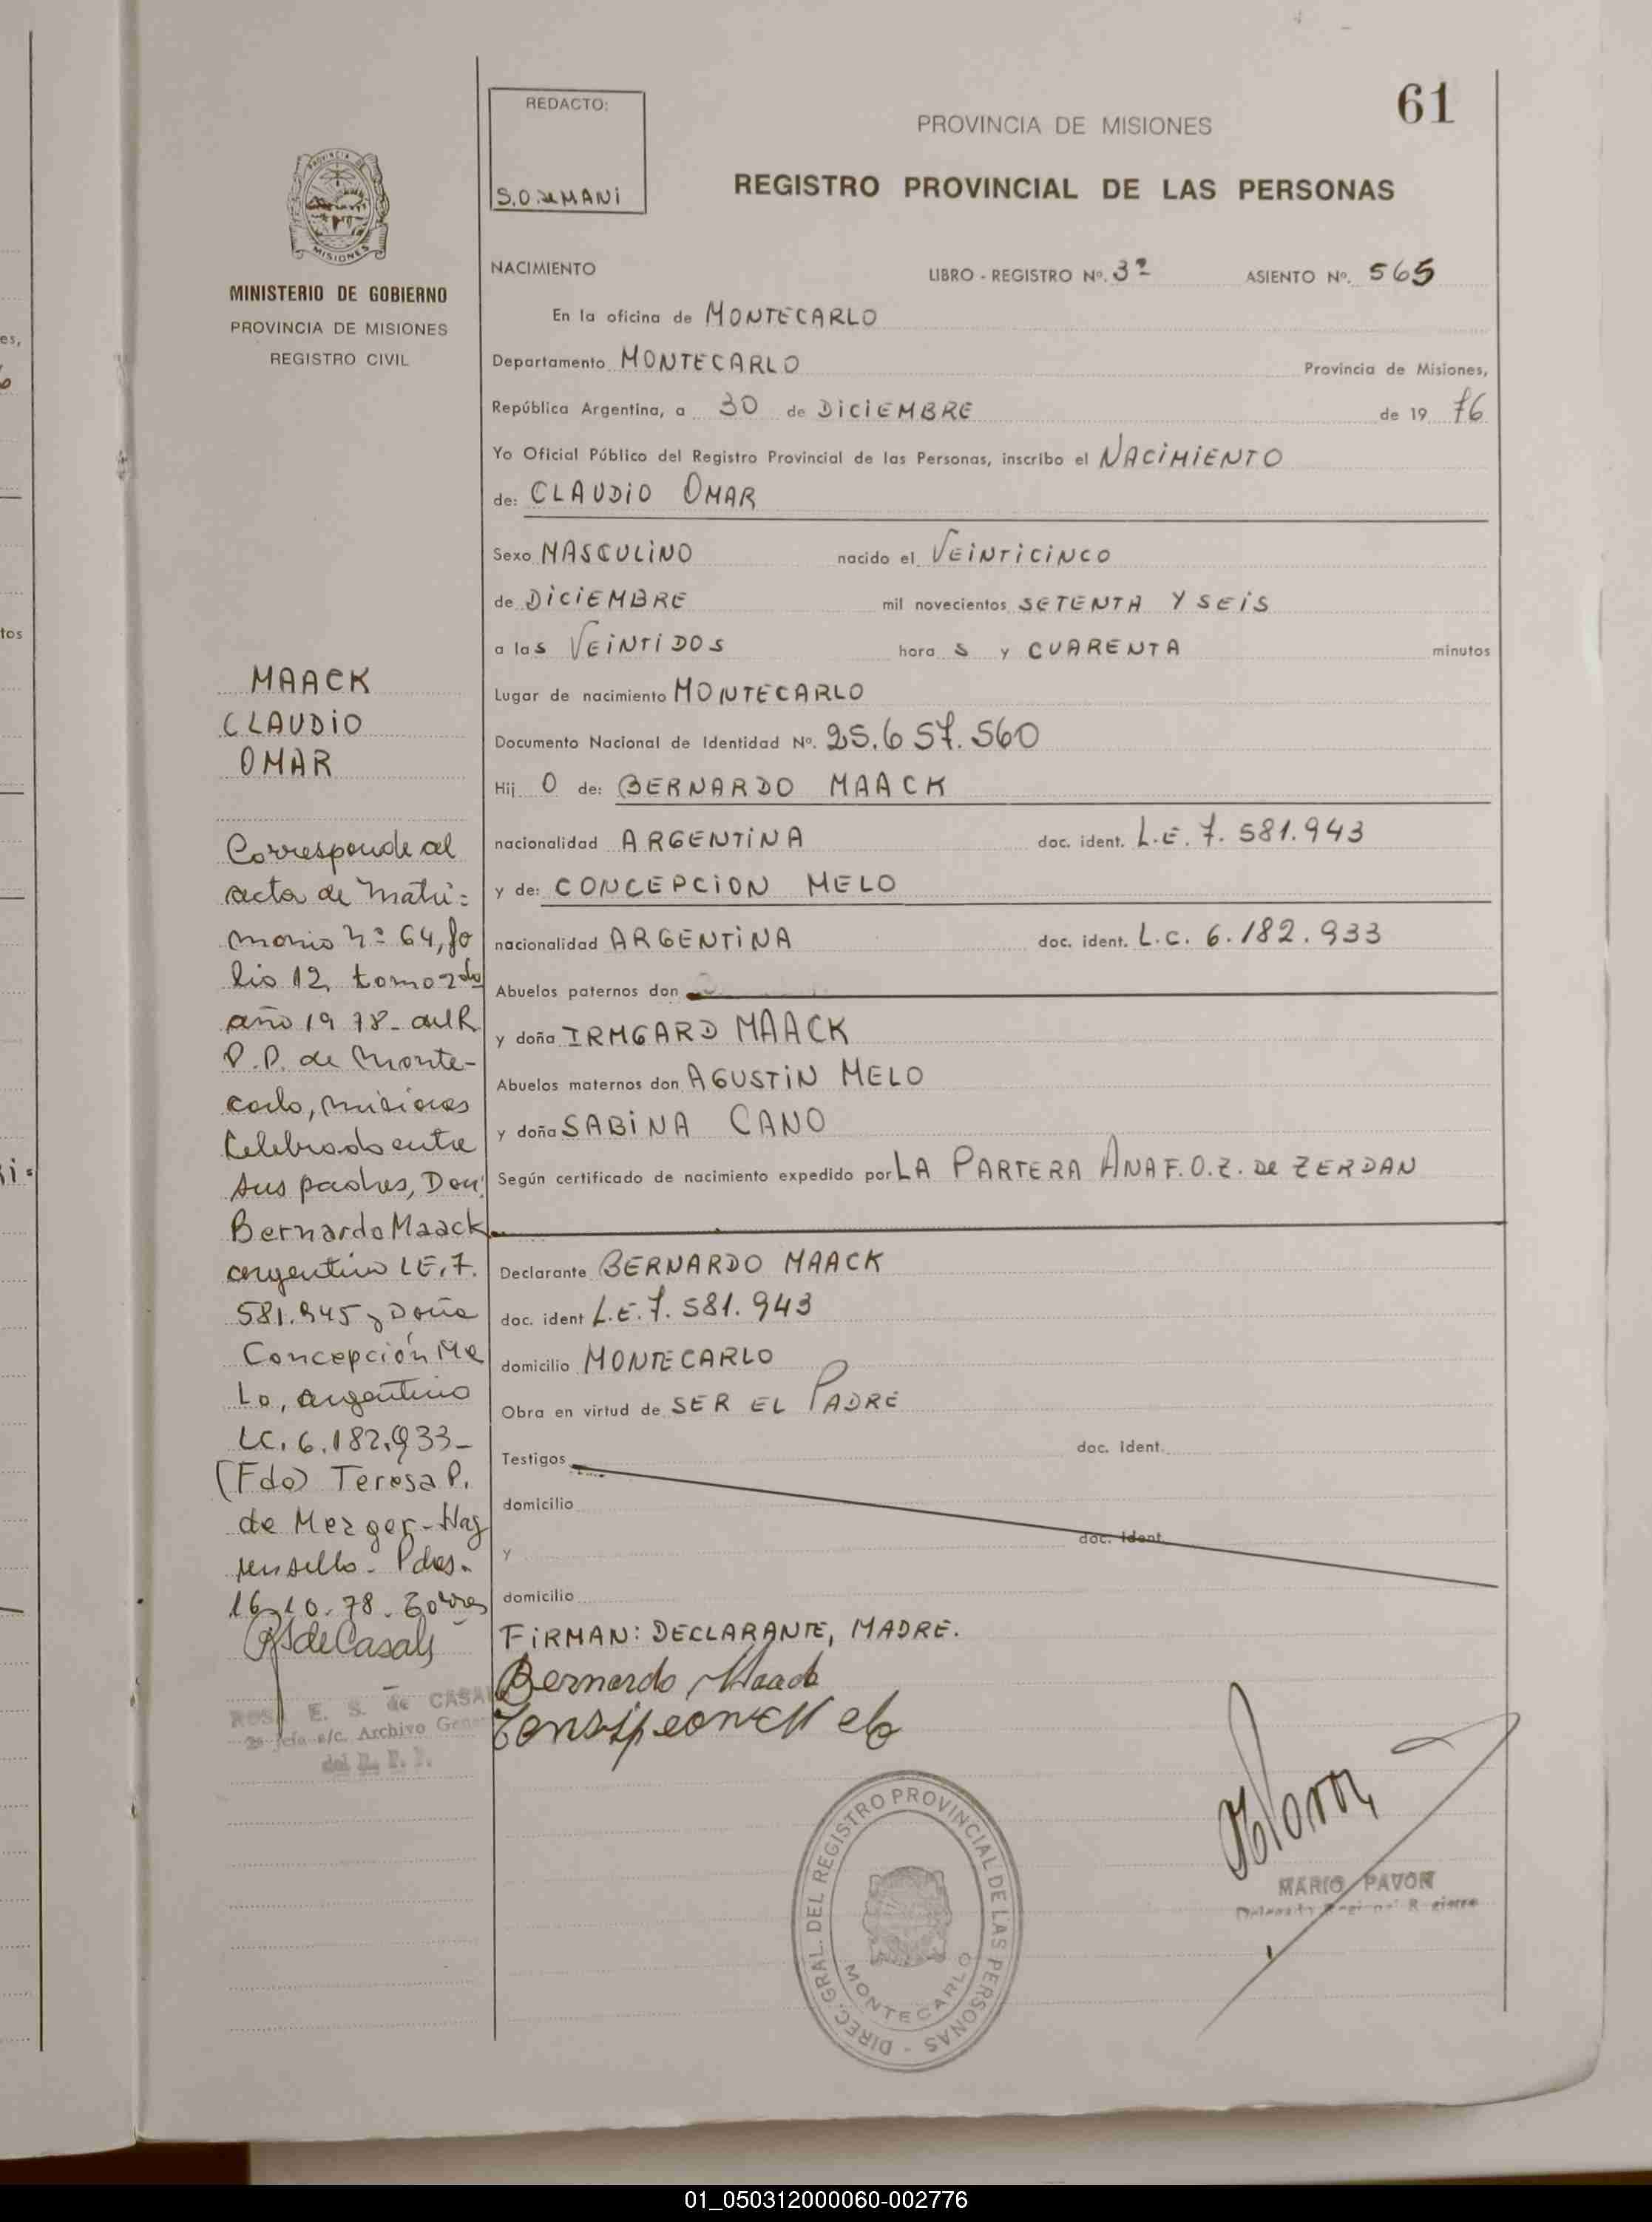 61
REDACTO:
S.O. de MANI
PROVINCIA DE MISIONES
REGISTRO PROVINCIAL DE LAS PERSONAS
PROVINCIA DE
MISIONES
MINISTERIO DE GOBIERNO
PROVINCIA DE MISIONES
REGISTRO CIVIL
NACIMIENTO LIBRO - REGISTRO Nº. 3º ASIENTO Nº. 565
En la oficina de MONTECARLO
Departamento MONTECARLO Provincia de Misiones,
República Argentina, a 30 de DICIEMBRE de 19 76
Yo Oficial Público del Registro Provincial de las Personas, inscribo el NACIMIENTO
de: CLAUDIO OMAR
Sexo MASCULINO nacido el VEINTICINCO
de DICIEMBRE mil novecientos SETENTA Y SEIS
a las VEINTIDOS hora s y CUARENTA minutos
Lugar de nacimiento MONTECARLO
Documento Nacional de Identidad Nº. 25.657.560
Hij O de: BERNARDO MAACK
nacionalidad ARGENTINA doc. ident. L.E. 7.581.943
y de: CONCEPCION MELO
nacionalidad ARGENTINA doc. ident. L.C. 6.182.933
Abuelos paternos don
y doña IRMGARD MAACK
Abuelos maternos don AGUSTIN MELO
y doña SABINA CANO
Según certificado de nacimiento expedido por LA PARTERA ANA F.O.Z. DE ZERDAN
Declarante BERNARDO MAACK
doc. ident L.E. 7.581.943
domicilio MONTECARLO
Obra en virtud de SER EL PADRE
Testigos doc. ident.
domicilio
y doc. ident.
domicilio
FIRMAN: DECLARANTE, MADRE.
Bernardo Maack
MAACK
CLAUDIO
OMAR
Corresponde al
acta de Matri=
monio nº 64, fo
lio 12, tomo 2do
año 1978- del R.
P.P. de Monte-
carlo, Misiones
Celebrado entre
sus padres, Don:
Bernardo Maack
argentino LE. 7.
581.945 y Doña
Concepción Me
lo, argentino
LC. 6.182.933-
(Fdo) Teresa P.
de Mezger - Hay
un sello - Pdas.
16-10-78.
RS de Casals
ROSA E. S. de CASALS
2º Jefe a/c. Archivo General
del R. P. P.
DIREC. GRAL. DEL REGISTRO PROVINCIAL DE LAS PERSONAS - MONTECARLO
MARIO PAVON
es,
tos
01_050312000060-002776